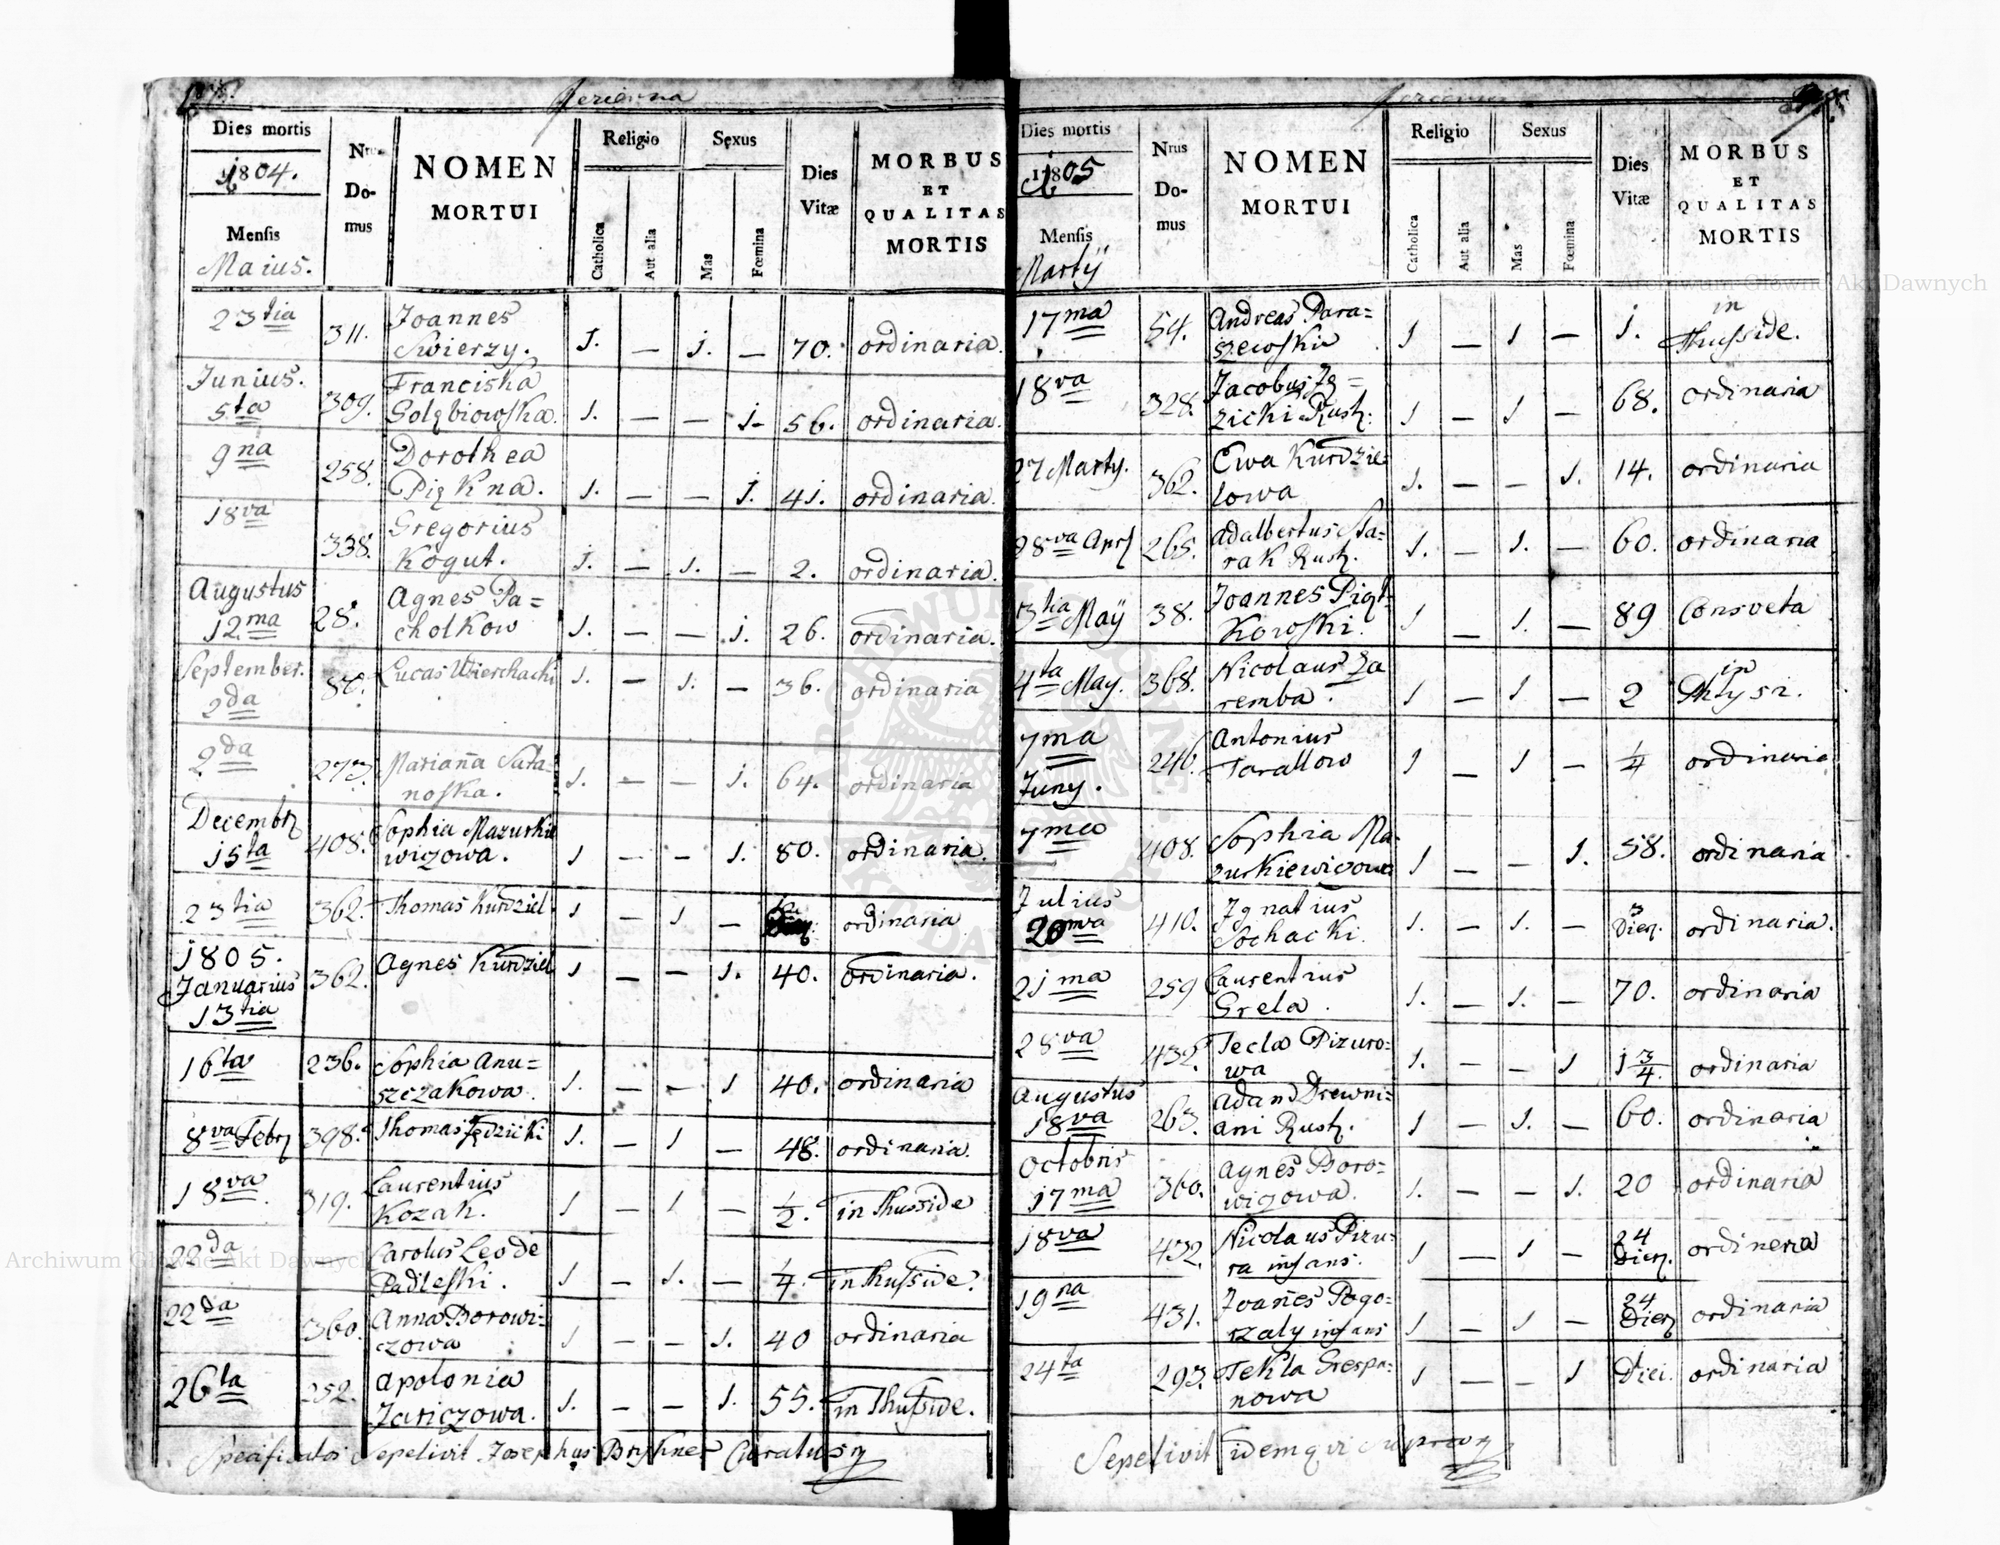 Dies mortis
1804.
Mensis
Maius.
Nrus
Do-
mus
NOMEN
MORTUI
Religio
Catholica
Aut alia
Sexus
Mas
Fœmina
Dies
Vitæ
MORBUS
ET
QUALITAS
MORTIS
23tia 311. Joannes
Swierzy. 1. — 1. — 70. ordinaria.
Junius.
5ta 309. Franciska
Golębiowska. 1. — — 1. 56. ordinaria.
9na 258. Dorothea
Piękna. 1. — — 1. 41. ordinaria.
18va 338. Gregorius
Kogut. 1. — 1. — 2. ordinaria.
Augustus
12ma 28. Agnes Pa=
cholkow 1. — — 1. 26. ordinaria.
September.
2da Lucas Wierchacki 1. — 1. — 36. ordinaria
2da 273. Marianna Sata=
noska. 1. — — 1. 64. ordinaria
Decembr
15ta 408. Sophia Mazurkie
wiczowa. 1 — — 1. 80. ordinaria.
23tia 362. Thomas Kurdziel 1 — 1 — ordinaria
1805.
Januarius
13tia 362. Agnes Kurdziel 1 — — 1. 40. ordinaria.
16ta 236. Sophia Anu=
szczakowa. 1. — — 1 40. ordinaria
8va Febr 398. Thomas Jędzicki 1. — 1 — 48. ordinaria.
18va 319. Laurentius
Kozak. 1 — 1 — 1/2. in Thusside
22da Carolus Leo de
Padleski. 1 — 1. — 1/4. in Thusside.
22da 360. Anna Borowi=
czowa 1 — — 1. 40 ordinaria
26ta 252. Apolonia
Jariczowa. 1. — — 1. 55. in Thusside.
Specificatos Sepelivit Josephus Brykner Curatus
Dies mortis
1805
Mensis
Martij
Nrus
Do-
mus
NOMEN
MORTUI
Religio
Catholica
Aut alia
Sexus
Mas
Fœmina
Dies
Vitæ
MORBUS
ET
QUALITAS
MORTIS
17ma 54. Andreas Para=
szewski 1 — 1 — 1. in
Thusside.
18va 328. Jacobus Ję=
zicki Rust. 1 — 1 — 68. ordinaria
27 Marty. 362. Ewa Kurdzie
lowa 1. — — 1. 14. ordinaria
28va Apr 265. Adalbertus Sta=
rak Rust. 1. — 1. — 60. ordinaria
3tia Maÿ 38. Joannes Piąt=
kowski. 1 — 1. — 89 Consveta
4ta May. 368. Nicolaus Za
remba. 1 — 1 — 2 in
Phtysi.
7ma
Juny. 246. Antonius
Tarallow 1 — 1 — 1/4 ordinaria
7ma 408. Sophia Ma=
zurkiewiczowa 1 — — 1. 58. ordinaria
Julius
20mva 410. Ignatius
Sochacki. 1. — 1. — 3
Dier. ordinaria.
21ma 259 Laurentius
Grela. 1. — 1. — 70. ordinaria
28va 432. Tecla Pizuro=
wa 1. — — 1 1 3/4. ordinaria
Augustus
18va 263. Adam Drewni=
ani Rust. 1 — 1. — 60. ordinaria
Octobris
17ma 360. Agnes Boro=
wiczowa. 1. — — 1. 20 ordinaria
18va 432. Nicolaus Pizu=
ra infans. 1 — 1 — 24
Dier. ordinaria
19na 431. Joannes Pogo=
rzaly infans 1 — 1 — 24
Dier ordinaria
24ta 293. Tekla Grespa=
nowa 1 — — 1 1
Diei. ordinaria
Sepelivit idem qui supra
Archiwum Główne Akt Dawnych
Archiwum Główne Akt Dawnych
ARCHIWUM GŁÓWNE AKT DAWNYCH